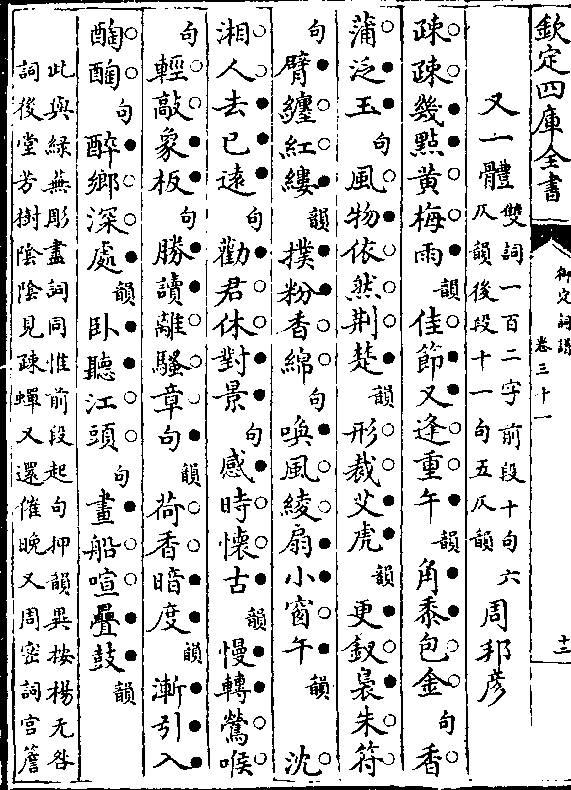 欽定四庫全書
御定詞譜
卷三十一
十二
又一體
雙詞一百二字前段十句六
仄韻後段十一句五仄韻
周邦彦
疎疎幾點黄梅雨韻佳節又逢重午韻角黍包金句香
蒲泛玉句風物依然荆楚韻形裁艾虎韻更釵裊朱符
句臂纏紅縷韻撲粉香綿句喚風綾扇小窗午韻沈
湘人去已遠句勸君休對景句感時懷古韻慢轉鶯喉
句輕敲象板句勝讀離騷章句韻荷香暗度韻漸引入
醄醄句醉鄉深處韻卧聽江頭句畫船喧疊鼓韻
此與綠蕪彫盡詞同惟前段起句押韻異按楊无咎
詞後堂芳樹陰陰見疎蟬又還催晚又周宻詞宫簷